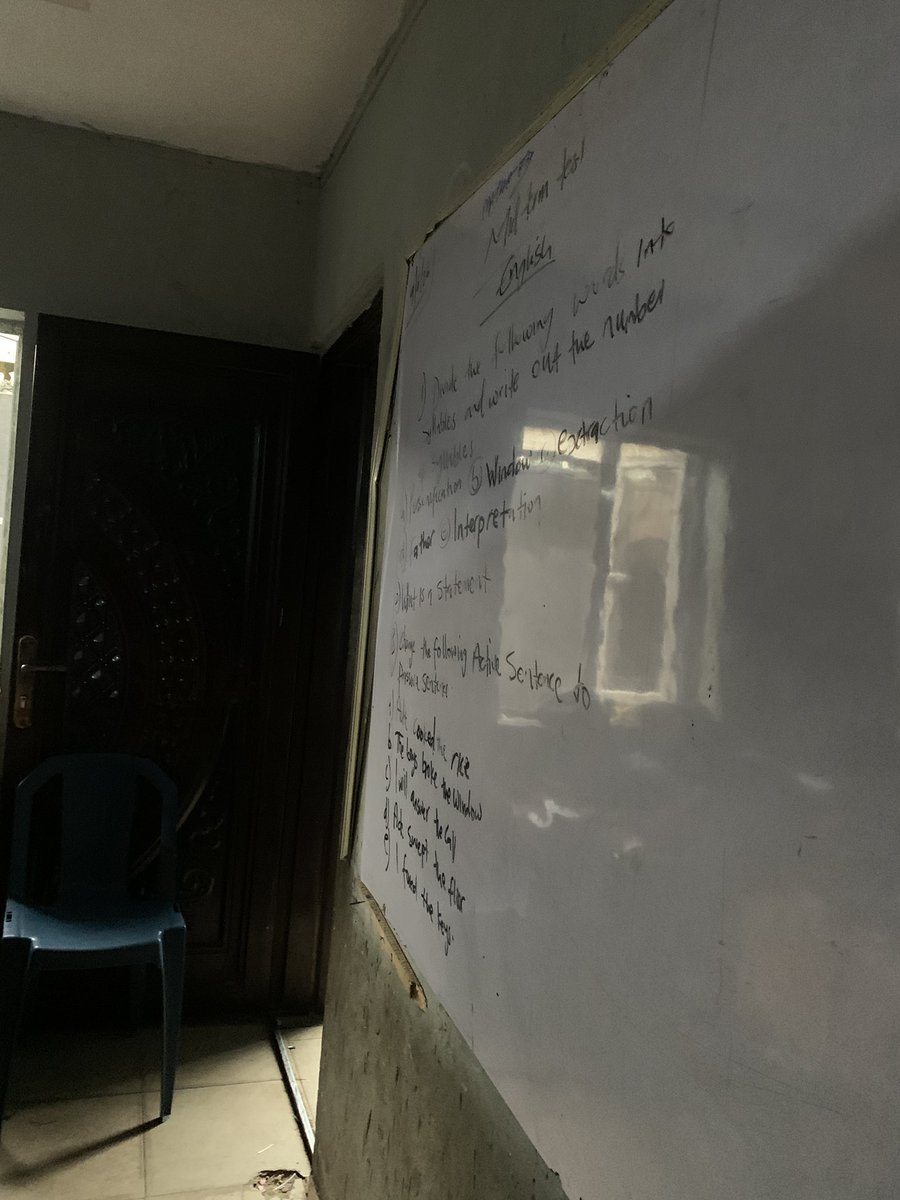 Mid term test
English
1) Divide the following words into
syllables and write out the number
syllables
b) Window c) extraction
d) Father e) Interpretation
2) What is a Statement
3) Change the following Active Sentence to
Passive Sentence
cooked the rice
b The boys broke the window
c) I will answer the call
d) Ade Sweept the floor
e) I found the keys.